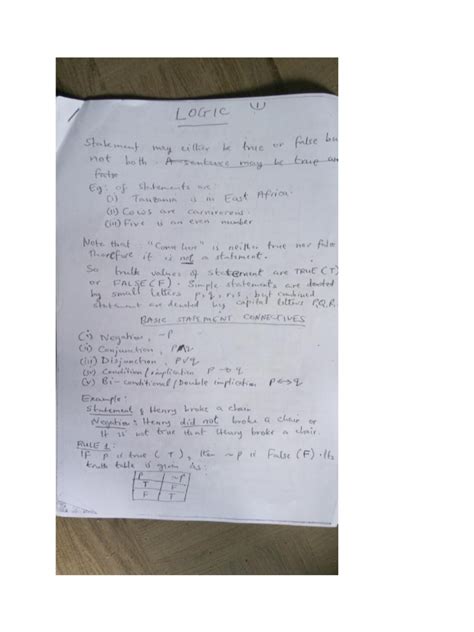 LOGIC (1)
Statement may either be true or false bu
not both. A sentence may be true an
false
Eg: of statements are:
(i) Tanzania is in East Africa.
(ii) Cows are carnivorous.
(iii) Five is an even number
Note that: "Come here" is neither true nor false
Therefore it is not a statement.
So truth values of statement are TRUE (T)
or FALSE (F). Simple statements are denoted
by small letters p, q, r, s, but combined
statement are denoted by capital letters P, Q, R.
BASIC STATEMENT CONNECTIVES
(i) Negation, ~P
(ii) Conjunction, P∧q
(iii) Disjunction, P∨q
(iv) Condition/implication P → q
(v) Bi-conditional/Double implication P↔q
Example:
Statement: Henry broke a chair
Negation: Henry did not broke a chair or
It is not true that Henry broke a chair.
RULE 1:
If P is true (T), then ~P is False (F).
truth table is given As:
P ~P
T F
F T